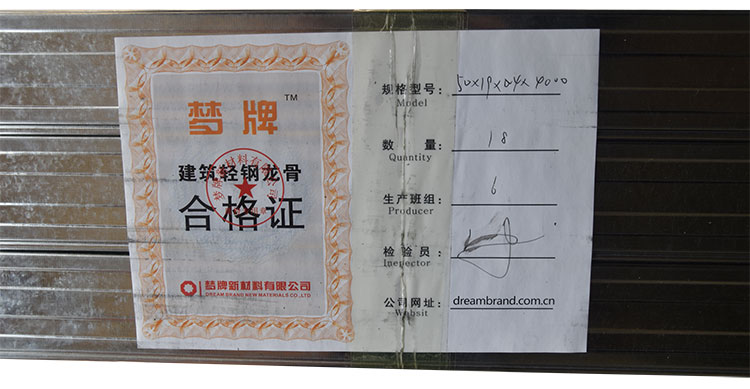 梦牌 TM
建筑轻钢龙骨
合格证
梦牌新材料有限公司
DREAM BRAND NEW MATERIALS CO.,LTD
规格型号: 50x19x0.4x4000
Model
数 量: 18
Quantity
生产班组: 6
Producer
检验员:
Inspector
公司网址: dreambrand.com.cn
Websit